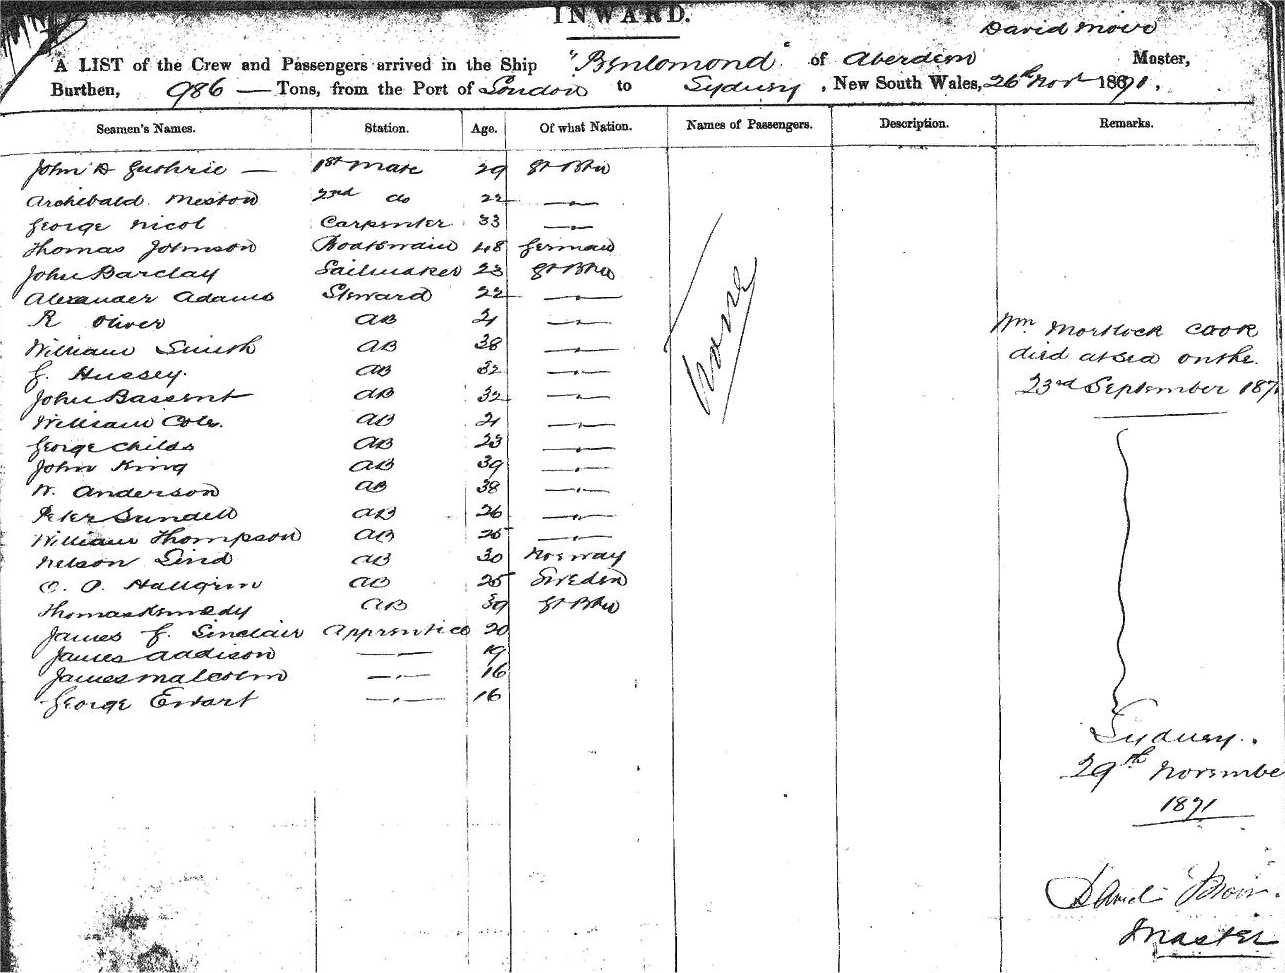 INWARD.
David Moir
A LIST of the Crew and Passengers arrived in the Ship "Benlomond" of Aberdeen Master,
Burthen, 986 — Tons, from the Port of London to Sydney, New South Wales, 26th Nov 1871.
Seamen's Names. Station. Age. Of what Nation. Names of Passengers. Description. Remarks.
John D Guthrie — 1st Mate 29 Gt Btn
Archibald Meston 2nd do 22 — " —
George Nicol Carpenter 33 — " —
Thomas Johnson Boatswain 48 German
John Barclay Sailmaker 23 Gt Btn
Alexander Adams Steward 22 — " —
R Oliver AB 21 — " —
William Smith AB 38 — " —
G. Hussey. AB 32 — " —
John Bassent AB 32 — " —
William Cole. AB 21 — " —
George Childs AB 23 — " —
John King AB 39 — " —
W. Anderson AB 38 — " —
Peter Sundell AB 26 — " —
William Thompson AB 25 — " —
Nelson Lind AB 30 Norway
C. O. Hallgrin AB 25 Sweden
Thomas Kennedy AB 39 Gt Btn
James G. Sinclair Apprentice 20
James Addison — " — 19
James Malcolm — " — 16
George Ewart — " — 16
None
Wm Mortlock Cook
died at sea on the
23rd September 1871
Sydney.
29th November
1871
David Moir.
Master